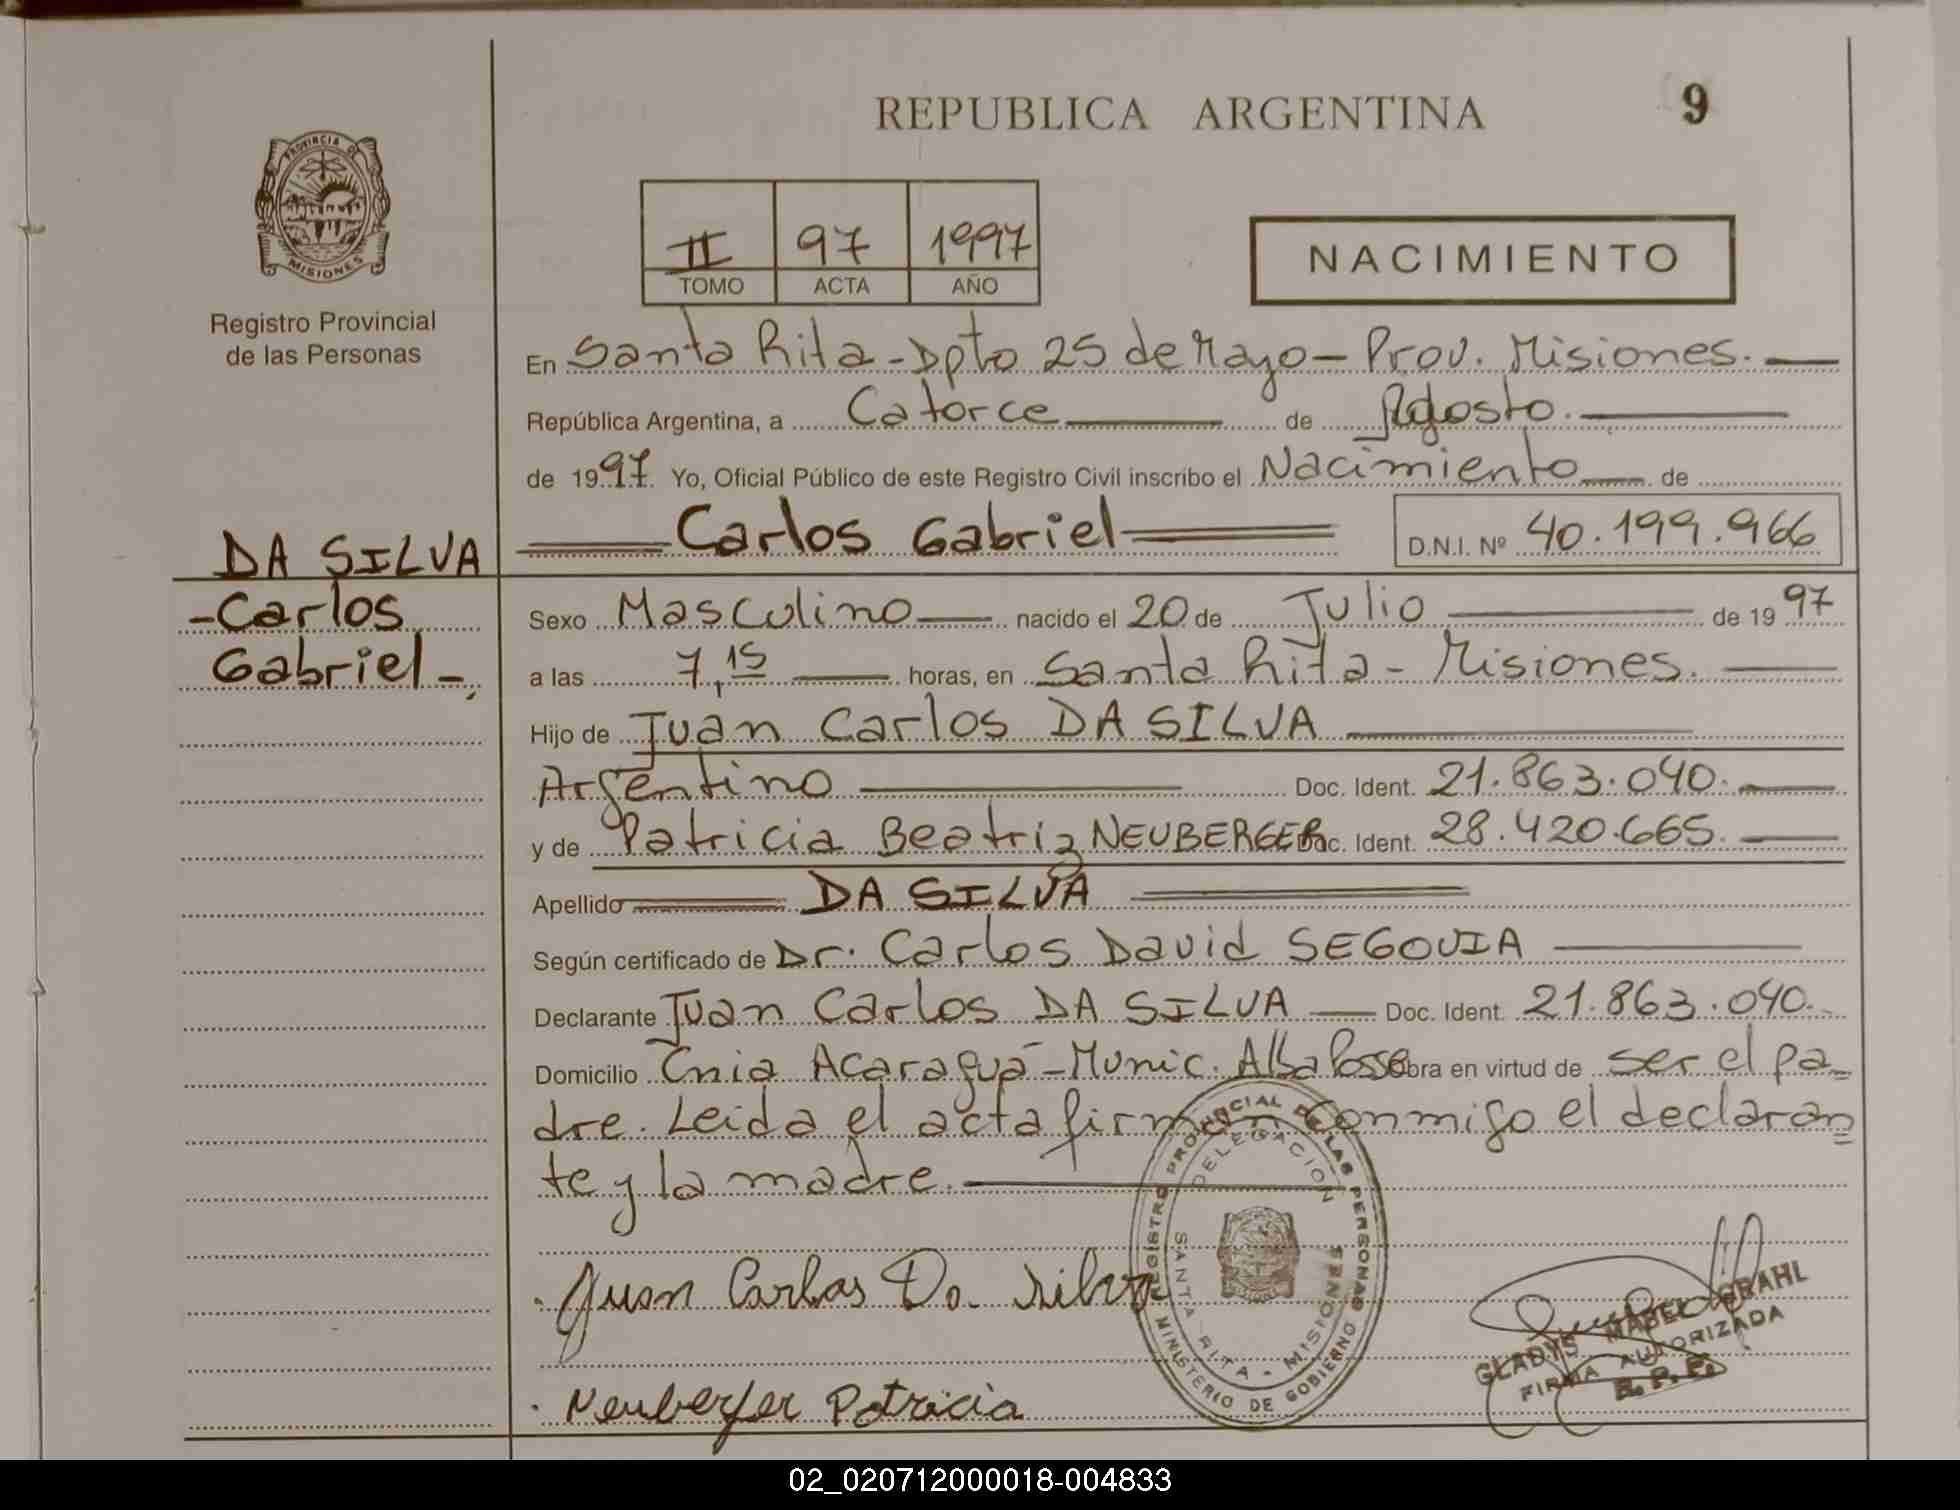 REPUBLICA ARGENTINA
9
PROVINCIA DE
MISIONES
Registro Provincial
de las Personas
II 97 1997
TOMO ACTA AÑO
NACIMIENTO
En Santa Rita - Dpto 25 de Mayo - Prov. Misiones.
República Argentina, a Catorce de Agosto.
de 1997. Yo, Oficial Público de este Registro Civil inscribo el Nacimiento de
Carlos Gabriel D.N.I. Nº 40.199.966
DA SILVA
-Carlos
Gabriel-
Sexo Masculino nacido el 20 de Julio de 1997
a las 7,15 horas, en Santa Rita - Misiones.
Hijo de Juan Carlos DA SILVA
Argentino Doc. Ident. 21.863.040.
y de Patricia Beatriz NEUBERGER Doc. Ident. 28.420.665.
Apellido DA SILVA
Según certificado de Dr. Carlos David SEGOVIA
Declarante Juan Carlos DA SILVA Doc. Ident. 21.863.040.
Domicilio Cnia Acaraguá - Munic. Alba Posse obra en virtud de ser el pa=
dre. Leida el acta firman conmigo el declaran=
te y la madre.
Juan Carlos Da Silva
Neuberger Patricia
REGISTRO PROVINCIAL DE LAS PERSONAS
MINISTERIO DE GOBIERNO
DELEGACION
SANTA RITA - MISIONES
GLADYS MABEL GRAHL
FIRMA AUTORIZADA
R. P. P.
02_020712000018-004833